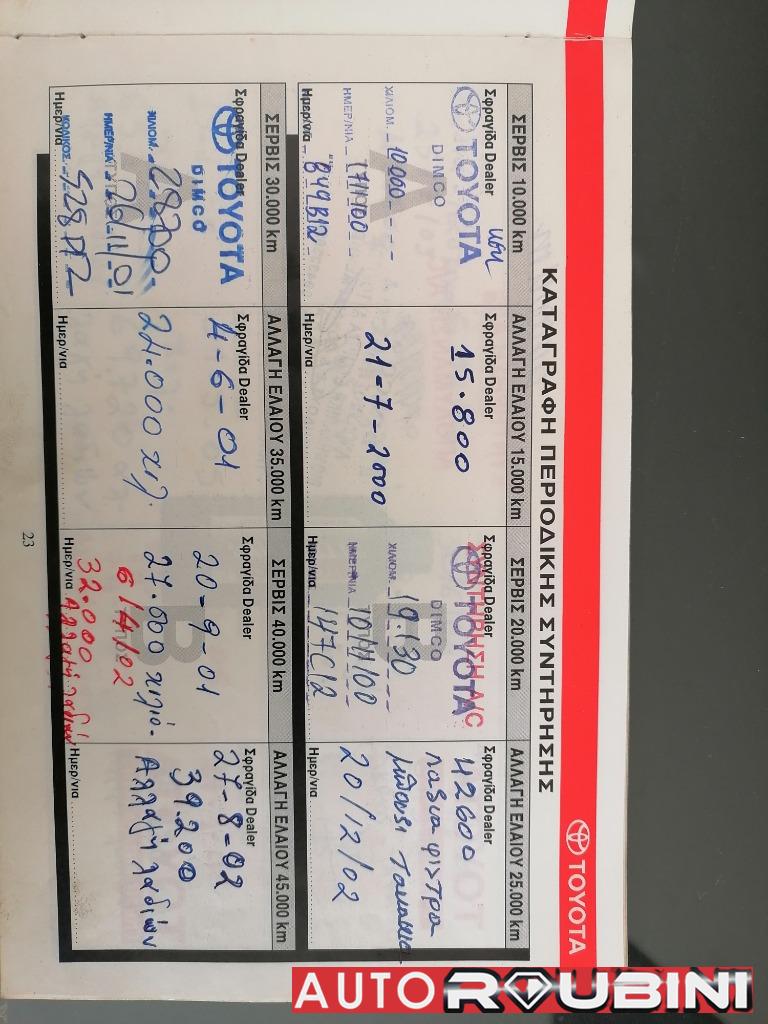 TOYOTA
ΚΑΤΑΓΡΑΦΗ ΠΕΡΙΟΔΙΚΗΣ ΣΥΝΤΗΡΗΣΗΣ
ΣΕΡΒΙΣ 10.000 km
Σφραγίδα Dealer
TOYOTA
DIMCO
ΧΙΛΙΟΜ. 10000
ΗΜΕΡ/ΝΙΑ 17/1/00
Ημερ/νία B49B12
ΑΛΛΑΓΗ ΕΛΑΙΟΥ 15.000 km
Σφραγίδα Dealer
15.800
21-7-2000
Ημερ/νία
ΣΕΡΒΙΣ 20.000 km
Σφραγίδα Dealer
ΣΥΝΤΗΡΗΣΗ A/C
TOYOTA
DIMCO
ΧΙΛΙΟΜ. 19.130
ΗΜΕΡ/ΝΙΑ
Ημερ/νία 147C12
ΑΛΛΑΓΗ ΕΛΑΙΟΥ 25.000 km
Σφραγίδα Dealer
42600
λαδια φιλτρα
μπουζι τακακια
20/12/02
Ημερ/νία
ΣΕΡΒΙΣ 30.000 km
Σφραγίδα Dealer
TOYOTA
DIMCO
ΧΙΛΙΟΜ.
ΗΜΕΡ/ΝΙΑ
ΚΩΔΙΚΟΣ
Ημερ/νία
ΑΛΛΑΓΗ ΕΛΑΙΟΥ 35.000 km
Σφραγίδα Dealer
4-6-01
24.000 χιλ.
Ημερ/νία
ΣΕΡΒΙΣ 40.000 km
Σφραγίδα Dealer
20-9-01
27.000 χιλιό.
6/4/02
32.000 Αλλαγή λαδιών
Ημερ/νία
ΑΛΛΑΓΗ ΕΛΑΙΟΥ 45.000 km
Σφραγίδα Dealer
27-8-02
39.200
Αλλαγή λαδιών
Ημερ/νία
23
AUTO ROUBINI